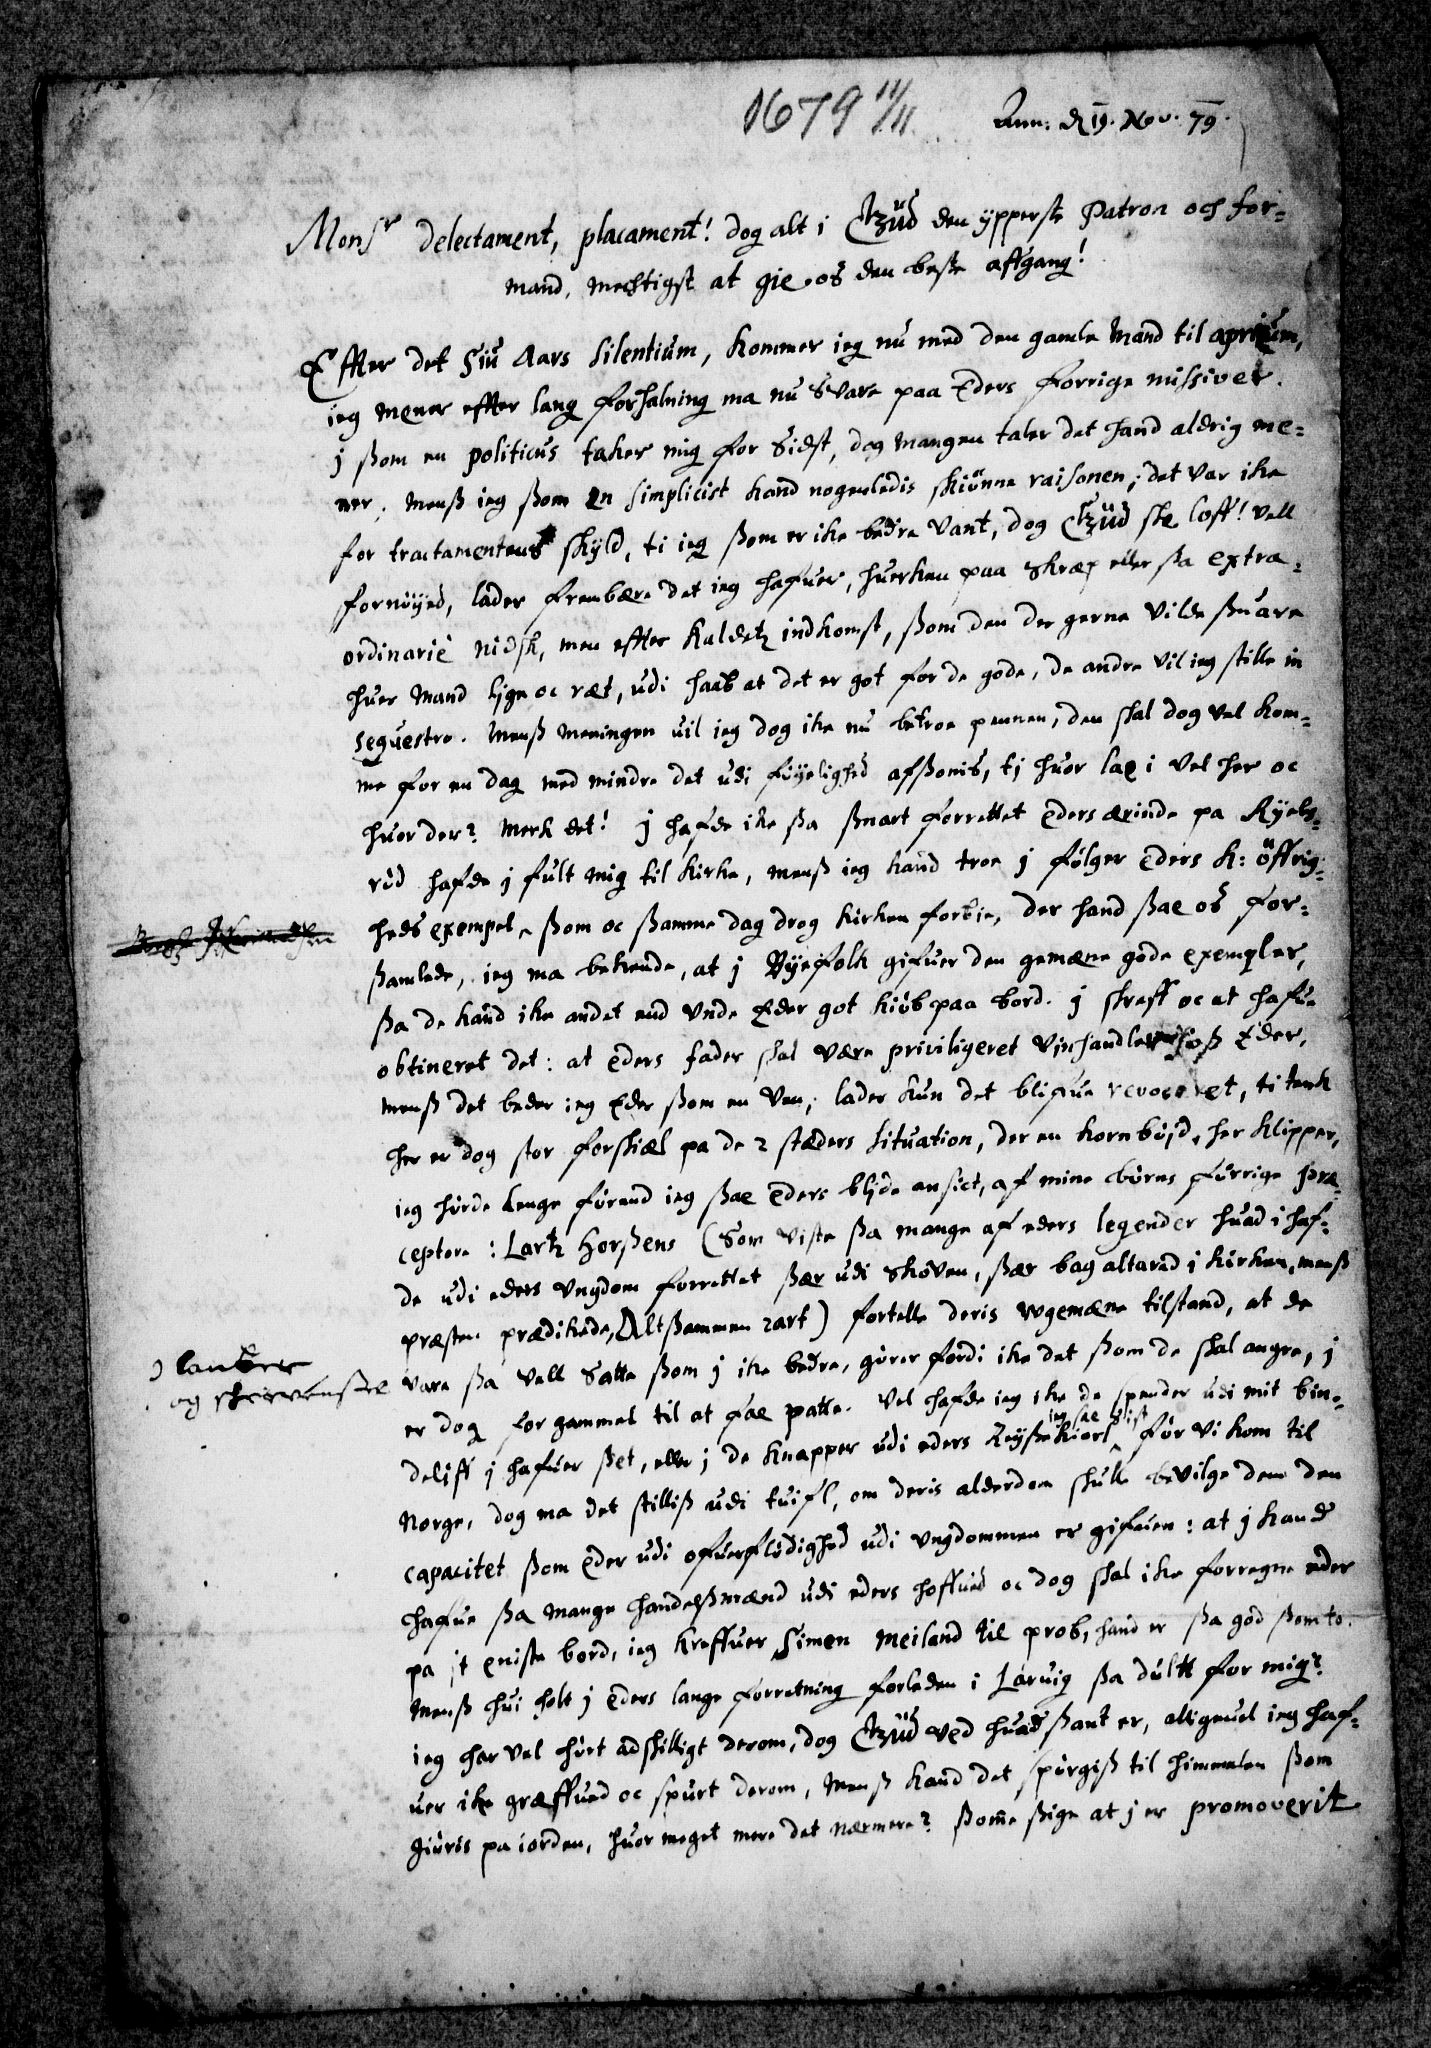 1679 11/11
Ann: d 19. Nov. 79.
Monsr delectament, placament! dog alt i Gud den ypperste Patron och for-
mand, mechtigst at gie os den beste affgang!
Effter det Siu Aars silentium, kommer jeg nu med den gamle mand til
jeg mener effter lang forhalning ma nu Svare paa Eders forrige missiver.
j ßom en politicus taker mig for Sidst, dog mangen taler det hand aldrig me-
ner, menß jeg ßom en simplicist kand nogenledis skiönne raisonen; det var ike
for tractamentens skyld, ti jeg ßom er ike bedre vant, dog Gud ske loff! vell
fornöyed, lader frembære det jeg hafuer, huerken paa skræp eller ßa extra-
ordinarie nidsk, men effter kaldetz indkomst, ßom den der gerne vilde ßuare
huer mand lige oc ræt, udi haab at det er got for de gode, de andre vil jeg stille in
sequestro. menß meningen uil jeg dog ike nu betroe pennen, den skal dog vel kom-
me for en dag med mindre det udi föyelighed afßonis, tj huor lae i vel her oc
huor der? merk det! j hafde ike ßa ßnart forrettet Eders ærinde pa Ryels-
rud hafde j fult mig til kirke, menß jeg kand troe j fölger Eders k: öffrig-
heds exempel, ßom oc ßamme dag drog kirken forbie, der hand ßae os for-
ßamlede, jeg ma bekende, at j Byefolk gifuer den gemæne gode exempler,
ßa de kand ike andet end vnde Eder got kiöb paa bord. j skreff oc at hafue
obtineret det: at Eders fader skal være priviligeret Vinhandler hoß Eder,
menß det beder jeg Eder ßom en Ven, lader kun det blifue revoceret, ti tenk
her er dog stor forskiæl pa de 2 stæders situation, der en kornböjd, her klipper,
jeg hörde lenge förend jeg ßae Eders blide ansict, af mine börns förrige præ-
ceptore: Lartz Horßens (Som viste ßa mange af eders legender huad i haf-
de udi eders vngdom forrettet ßær udi Skoven, ßær bag altared i kirken, menß
præsten prædikede, Altßammen rart) fortelle deris vgemæne tilstand, at de
vare ßa vell Satte ßom j ike bedre, görer fordi ike det ßom de skal angre, j
er dog for gammel til at fae patte. Vel hafde jeg ike de spender udi mit bin-
deliff j hafuer ßet, eller j de knapper udi eders Reyßekiorl jeg sae sist för vi kom til
Norge, dog ma det stilliß udi tuifl, om deris alderdom skulle bevilge dem den
capacitet ßom Eder udi ofuerflödighed udi vngdommen er gifuen: at j kand
hafue ßa mange handelßmænd udi eders hoffued oc dog skal ike forregne eder
pa it eniste bord, jeg kreffuer Simen Meiland til prob, hand er ßa god ßom to.
menß hui holt j Eders lange forretning forleden i Laruig ßa dultt for mig?
jeg har vel hört adskilligt derom, dog Gud ved huad ßant er, alligeuel jeg haf-
uer ike græffued oc spurt derom, menß kand det spörgiß til himmelen ßom
giöris pa jorden, huor meget mere det nærmere? ßom̄e ßige at j er promoverit